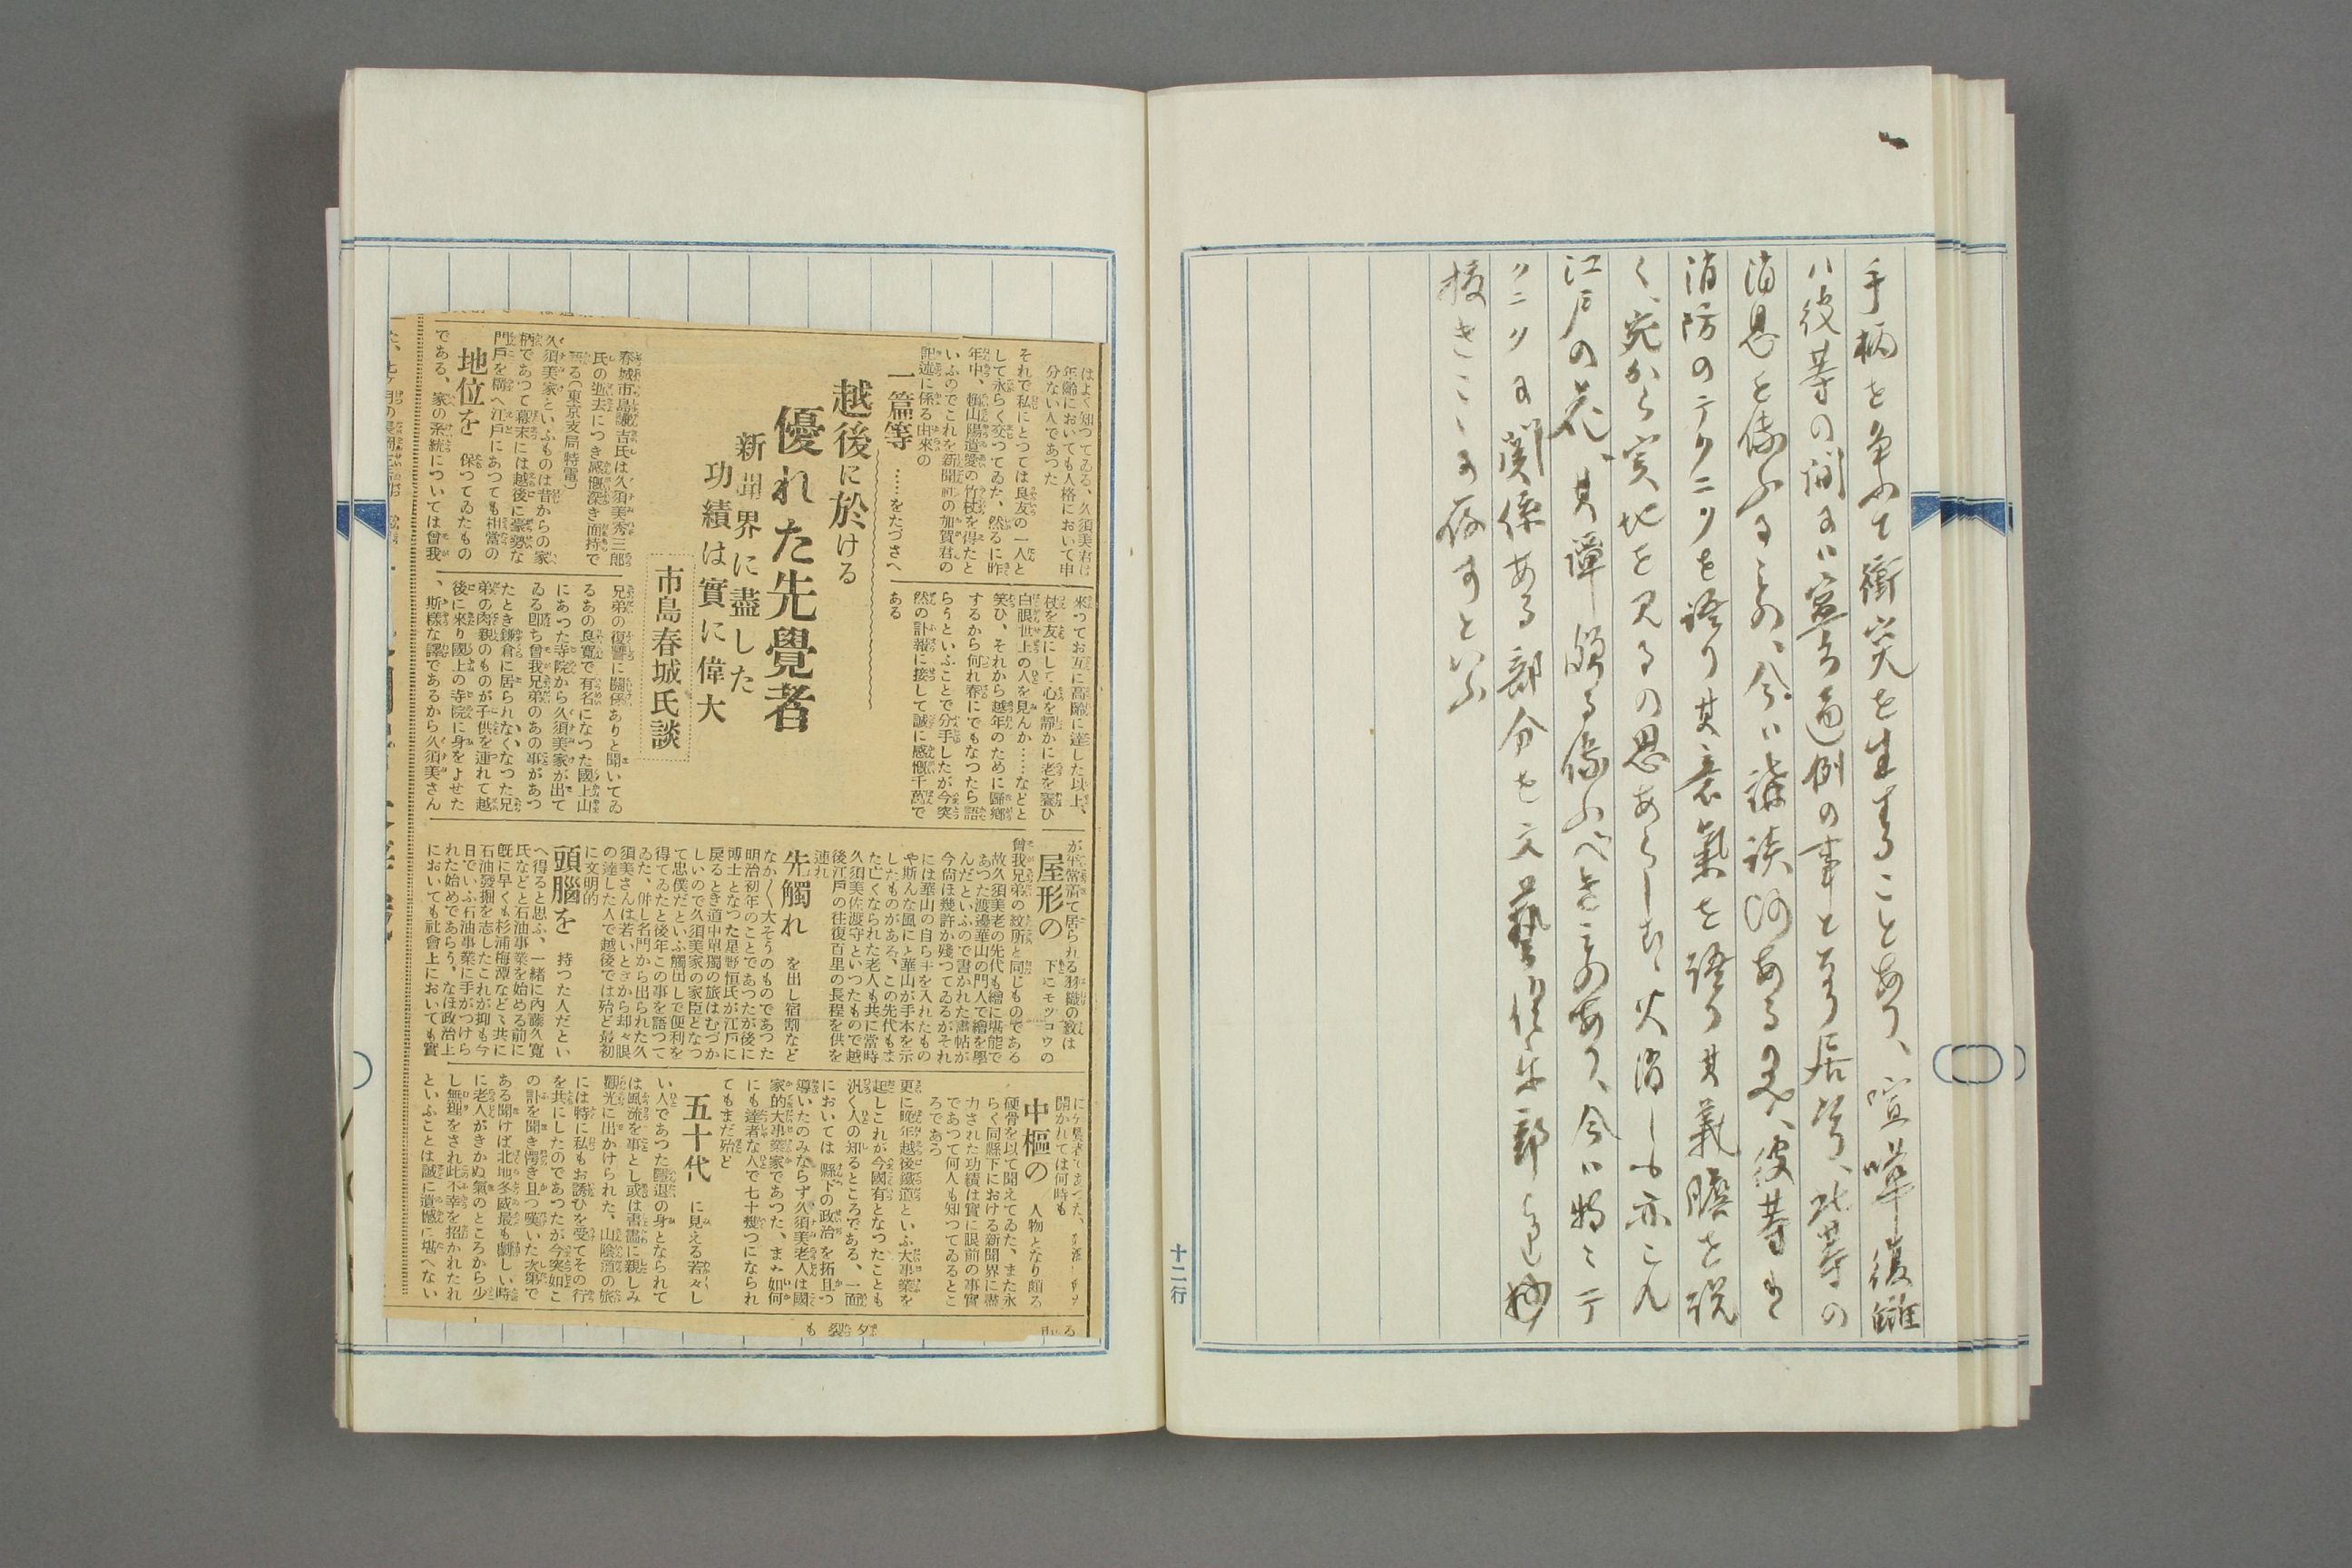 手柄を争ふて衝突を生することあり、喧嘩復讎
ハ彼等の間にハ寧ろ通例の事となり居
消防のテクニツを語り其意氣を語り其義膽を説
く、宛から実地を見るの思あらしむ、火消しも亦これ
江戸の花、其譚
クニツに関係ある部分を文藝倶楽部
抜きこゝに存すといふ
十二行
はよく知つてゐる、久須美君は
年齡においても人格において申
分ない人であつた
それで私にとつては良友の一人と
して永らく交つてゐた、然るに昨
年中、頼山陽遺愛の竹杖を得たと
いふのでこれを新聞町の加賀君の
記述に係る由來の
一篇等……をたづさへ
來つてお互に高齡に達した以上、
杖を友にして心を靜かに老を養ひ
白眼世上の人を見んか……などと
笑ひ、それから越年のために歸鄕
するから何れ春にでもなつたら語
らうといふことで分手したが今突
然の訃報に接して誠に感慨千萬で
ある
越後に於ける
優れた先覺者
新聞界に盡した
功績は實に偉大
市島春城氏談
春城市島謙吉氏は久須美秀三郎
氏の逝去につき感慨深き面持で
語る(東京支局特電)
久須美家といふものは昔からの家
柄であつて幕末には越後に豪勢な
門戸を構へ江戸にあつても相當の
地位を 保つてゐたもの
である、家の系統については曾我
兄弟の復讐に關係ありと聞いてゐ
るあの良寛で有名になつた國上山
にあつた寺院から久須美家が出て
ゐる卽ち曾我兄弟のあの事があつ
たとき鎌倉に居られなくなつた兄
弟の肉親のものが子供を連れて越
後に來り國上の寺院に身をよせた
、斯樣な譯であるから久須美さん
が平常着て居られる羽織の紋は
屋形の 下にモツコウの
曾我兄弟の紋所と同じものである
故久須美老の先代も繪に堪能で
あつた渡邊華山の門人で繪を學
んだといふので書かれた畵帖が
今尙ほ幾許か殘つてゐるがそれ
には華山の自ら手を入れたもの
や斯んな風にと華山が手本を示
したものがある、この先代もま
た亡くなられた老人も共に當時
久須美佐渡守といつたもので越
後江戸の往復百里の長程を供を
連れ
先觸れ を出し宿割など
なか〳〵大そうのものであつた
明治初年のことであつたが後に
博士となつた星野恒氏が江戸に
戻るとき道中單獨の旅はむづか
しいので久須美家の家臣となつ
て忠僕だといふ觸出しで便利を
得てゐたと後年この事を語つて
ゐた、併し名門から出られた久
須美さんは若いときから却々眼
の達した人で越後では殆ど最初
に文明的
頭腦を 持つた人だとい
へ得ると思ふ、一緖に內藤久寬
氏などと石油事業を始める前に
旣に早くも杉浦梅潭などゝ共に
石油發掘を志したこれが抑も今
日でいふ石油事業に手がつけら
れた始めであらう、なほ政治上
においても社會上においても實
開かれては何時も
中樞の 人物となり頗る
硬骨を以て聞えてゐた、また永
らく同縣下における新聞界に盡
力された功績は實に眼前の事實
であつて何人も知つてゐるとこ
ろであろ
更に晩年越後鐵道といふ大事業を
起しこれが今國有となつたことも
汎く人の知るところである、一面
においては縣下の政治を拓且つ
導いたのみならず久須美老人は國
家的大事業家であつた、また如何
にも達者な人で七十幾つになられ
てもまだ殆ど
五十代 に見える若々し
い人であつた隱退の身となられて
は風流を事とし或は書畵に親しみ
觀光に出かけられた、山陰道の旅
には特に私もお誘ひを受てその行
を共にしたのであつたが今突如こ
の訃を聞き愕き且つ嘆いた次第で
ある聞けば北地冬威最も劇しい時
に老人がきかぬ氣のところから少
し無理をされ此不幸を招かれたれ
といふことは誠に遺憾に堪へない